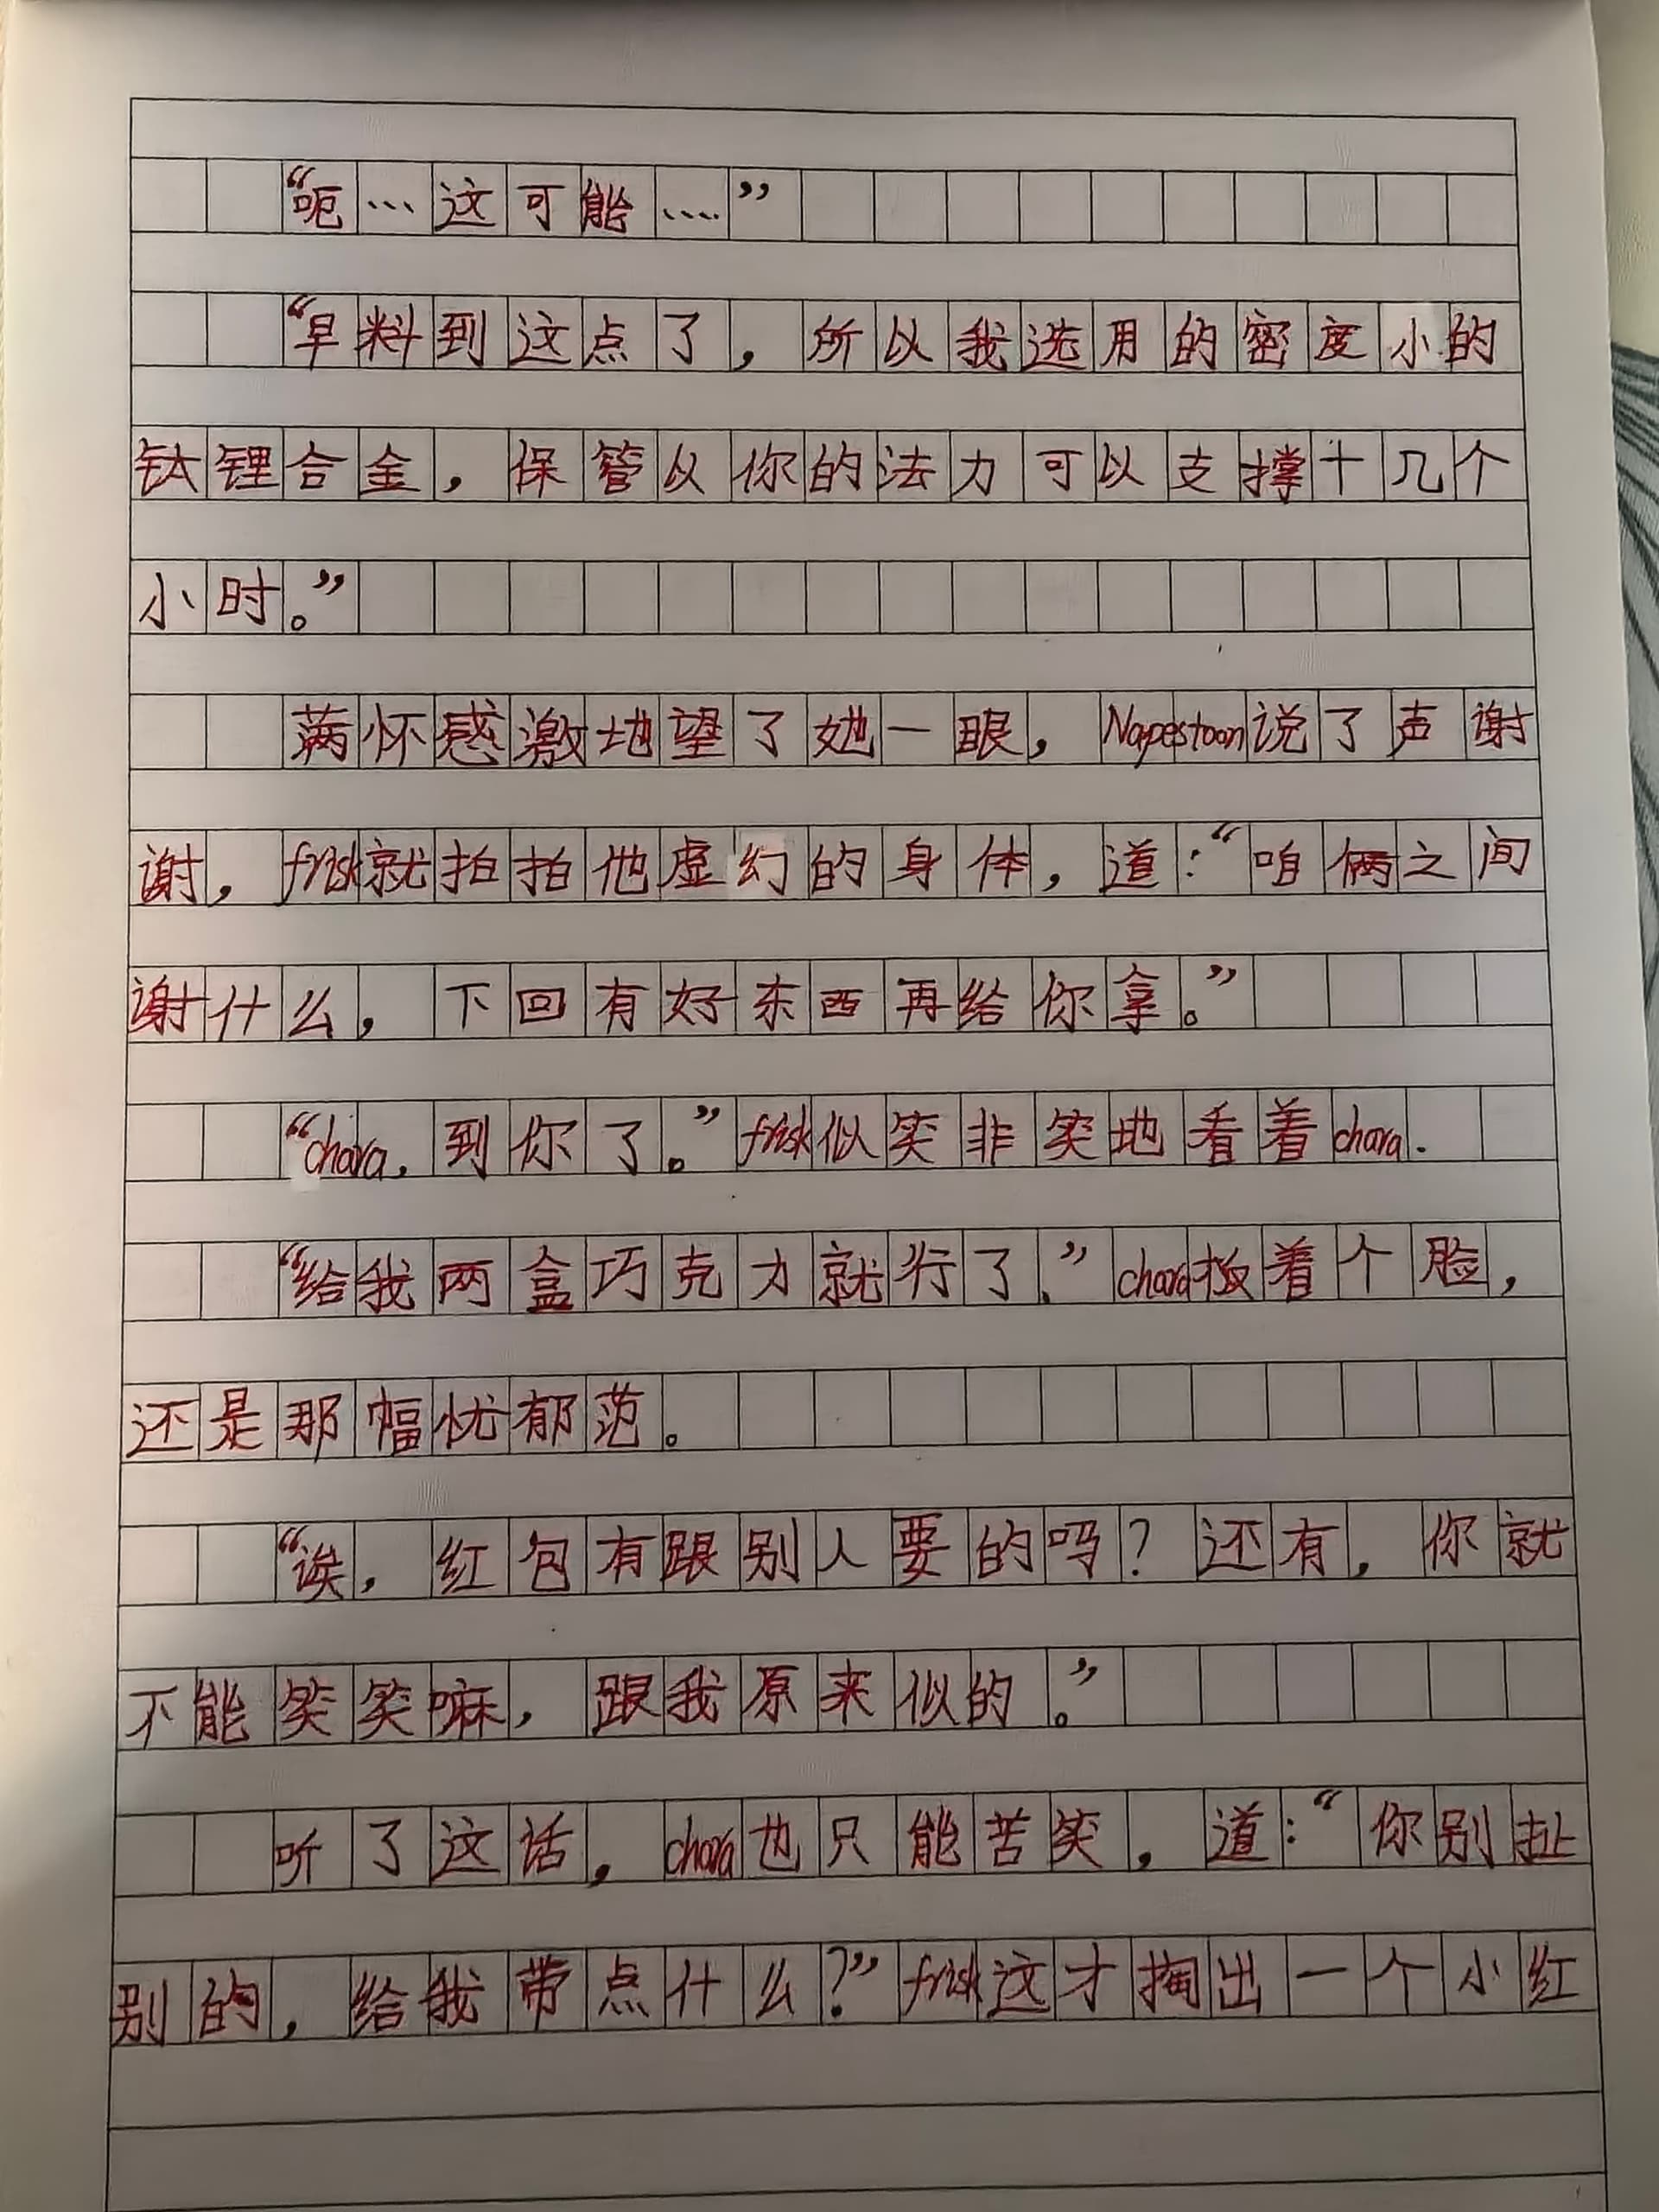 “呃…这可能…”
“早料到这点了，所以我选用的密度小的
钛锂合金，保管以你的法力可以支撑十几个
小时。”
满怀感激地望了她一眼，Napestoon说了声谢
谢，frisk就拍拍他虚幻的身体，道：“咱俩之间
谢什么，下回有好东西再给你拿。”
“chara，到你了。”frisk似笑非笑地看着chara.
“给我两盒巧克力就行了.”chara板着个脸，
还是那幅忧郁范。
“诶，红包有跟别人要的吗？还有，你就
不能笑笑嘛，跟我原来似的。”
听了这话，chara也只能苦笑，道：“你别扯
别的，给我带点什么？”frisk这才掏出一个小红